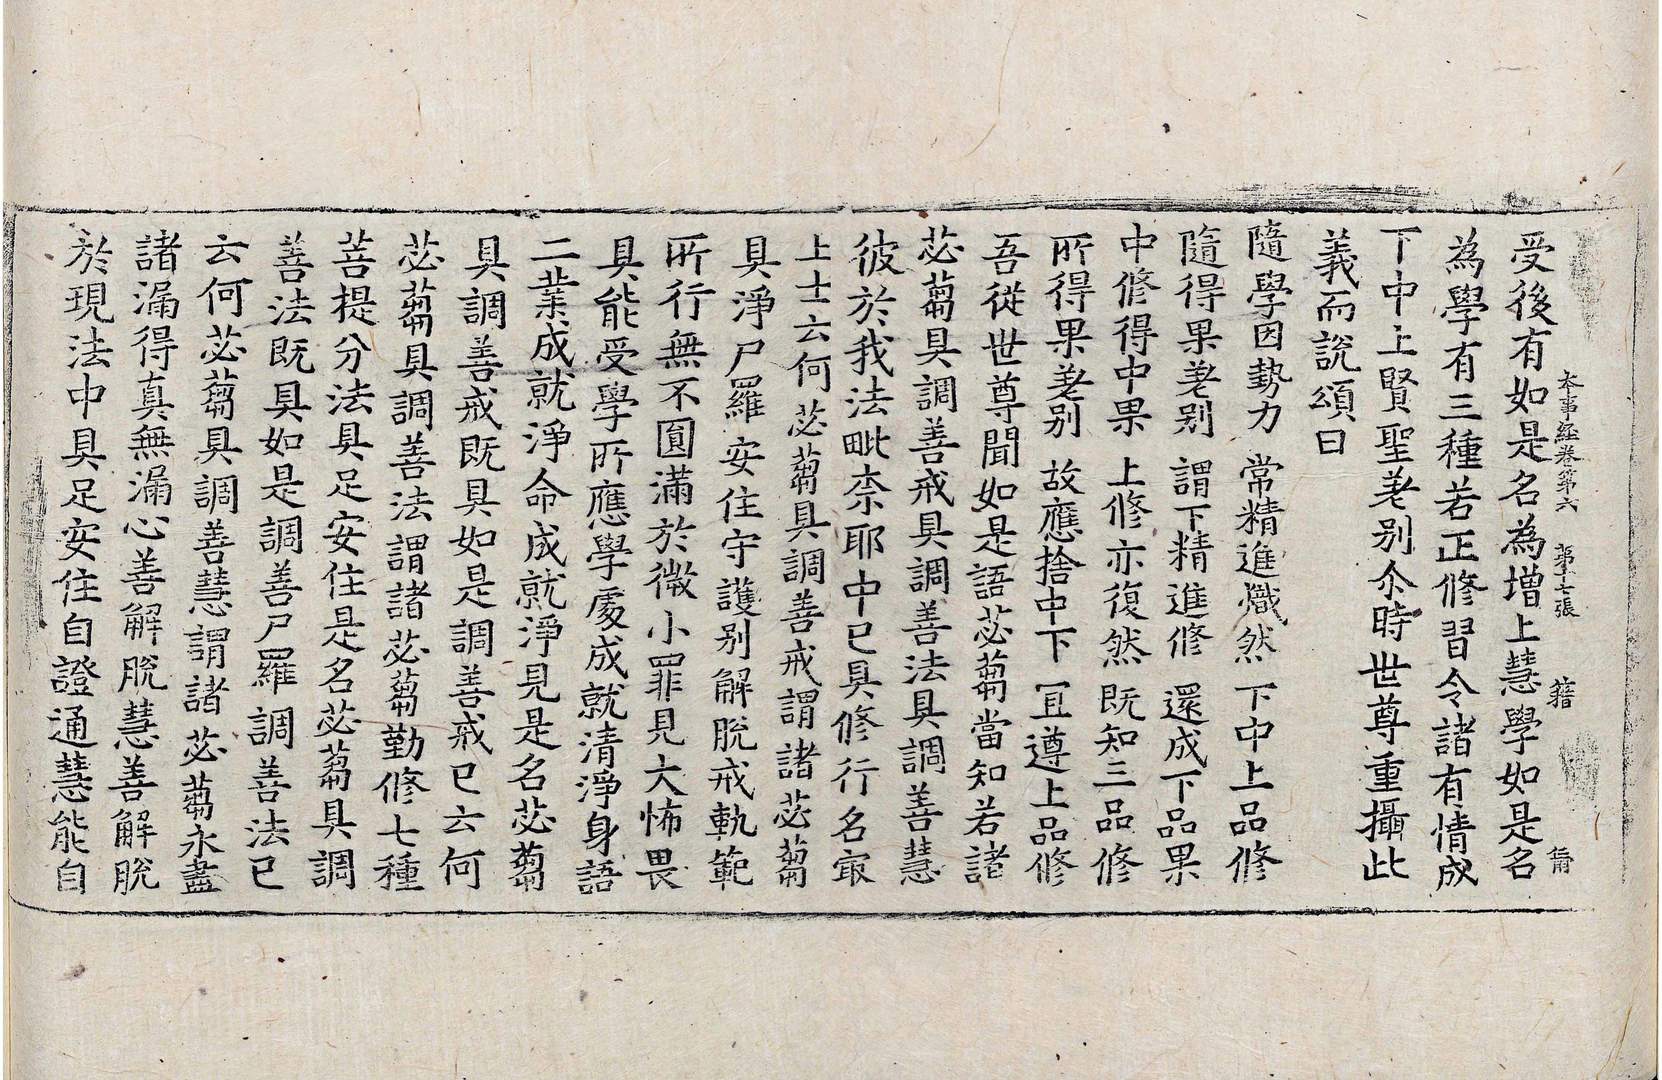 本事經卷第六 第十七張 藉
受後有如是名為增上慧學如是名
為學有三種若正修習令諸有情成
下中上賢聖差别尒時世尊重攝此
義而說頌曰
隨學因勢力 常精進熾然 下中上品修
隨得果差别 謂下精進修 還成下品果
中修得中果 上修亦復然 既知三品修
所得果差别 故應捨中下 冝遵上品修
吾從世尊聞如是語苾蒭當知若諸
苾蒭具調善戒具調善法具調善慧
彼於我法毗柰耶中已具修行名㝡
上士云何苾蒭具調善戒謂諸苾蒭
具淨尸羅安住守護别解脫戒軌範
所行無不圎滿於微小罪見大怖畏
具能受學所應學處成就清淨身語
二業成就淨命成就淨見是名苾蒭
具調善戒既具如是調善戒已云何
苾蒭具調善法謂諸苾蒭勤修七種
菩提分法具足安住是名苾蒭具調
善法既具如是調善尸羅調善法已
云何苾蒭具調善慧謂諸苾蒭永盡
諸漏得真無漏心善解脫慧善解脫
於現法中具足安住自證通慧能自